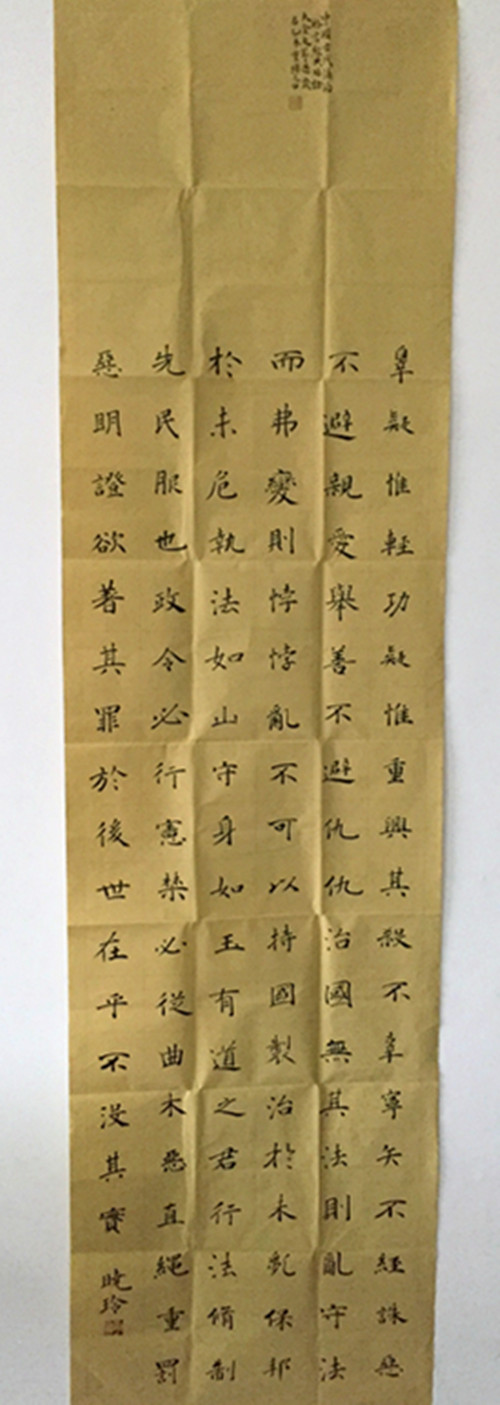 辠疑惟輕功疑惟重興其殺不辜寧矢不經誅惡
不避親愛舉善不避仇仇治國無其法則亂守法
而弗變則悖悖亂不可以持國製治於未亂保邦
於未危執法如山守身如玉有道之君行法脩制
先民服也政令必行憲禁必從曲木惡直繩重罰
惡明證欲著其罪於後世在乎不没其實
曉玲